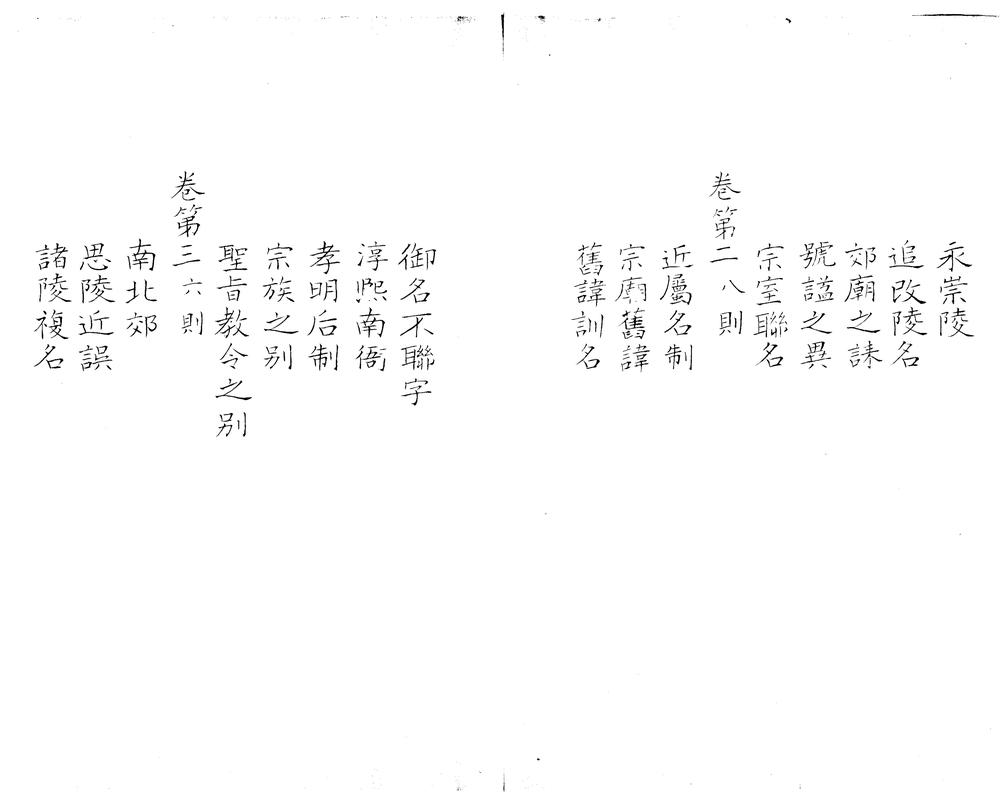 永崇陵
追改陵名
郊廟之誄
號謚之異
宗室聯名
卷第二八則
近屬名制
宗廟舊諱
舊諱訓名
御名不聯字
淳熙南衙
孝明后制
宗族之别
聖旨教令之别
卷第三六則
南北郊
思陵近誤
諸陵複名